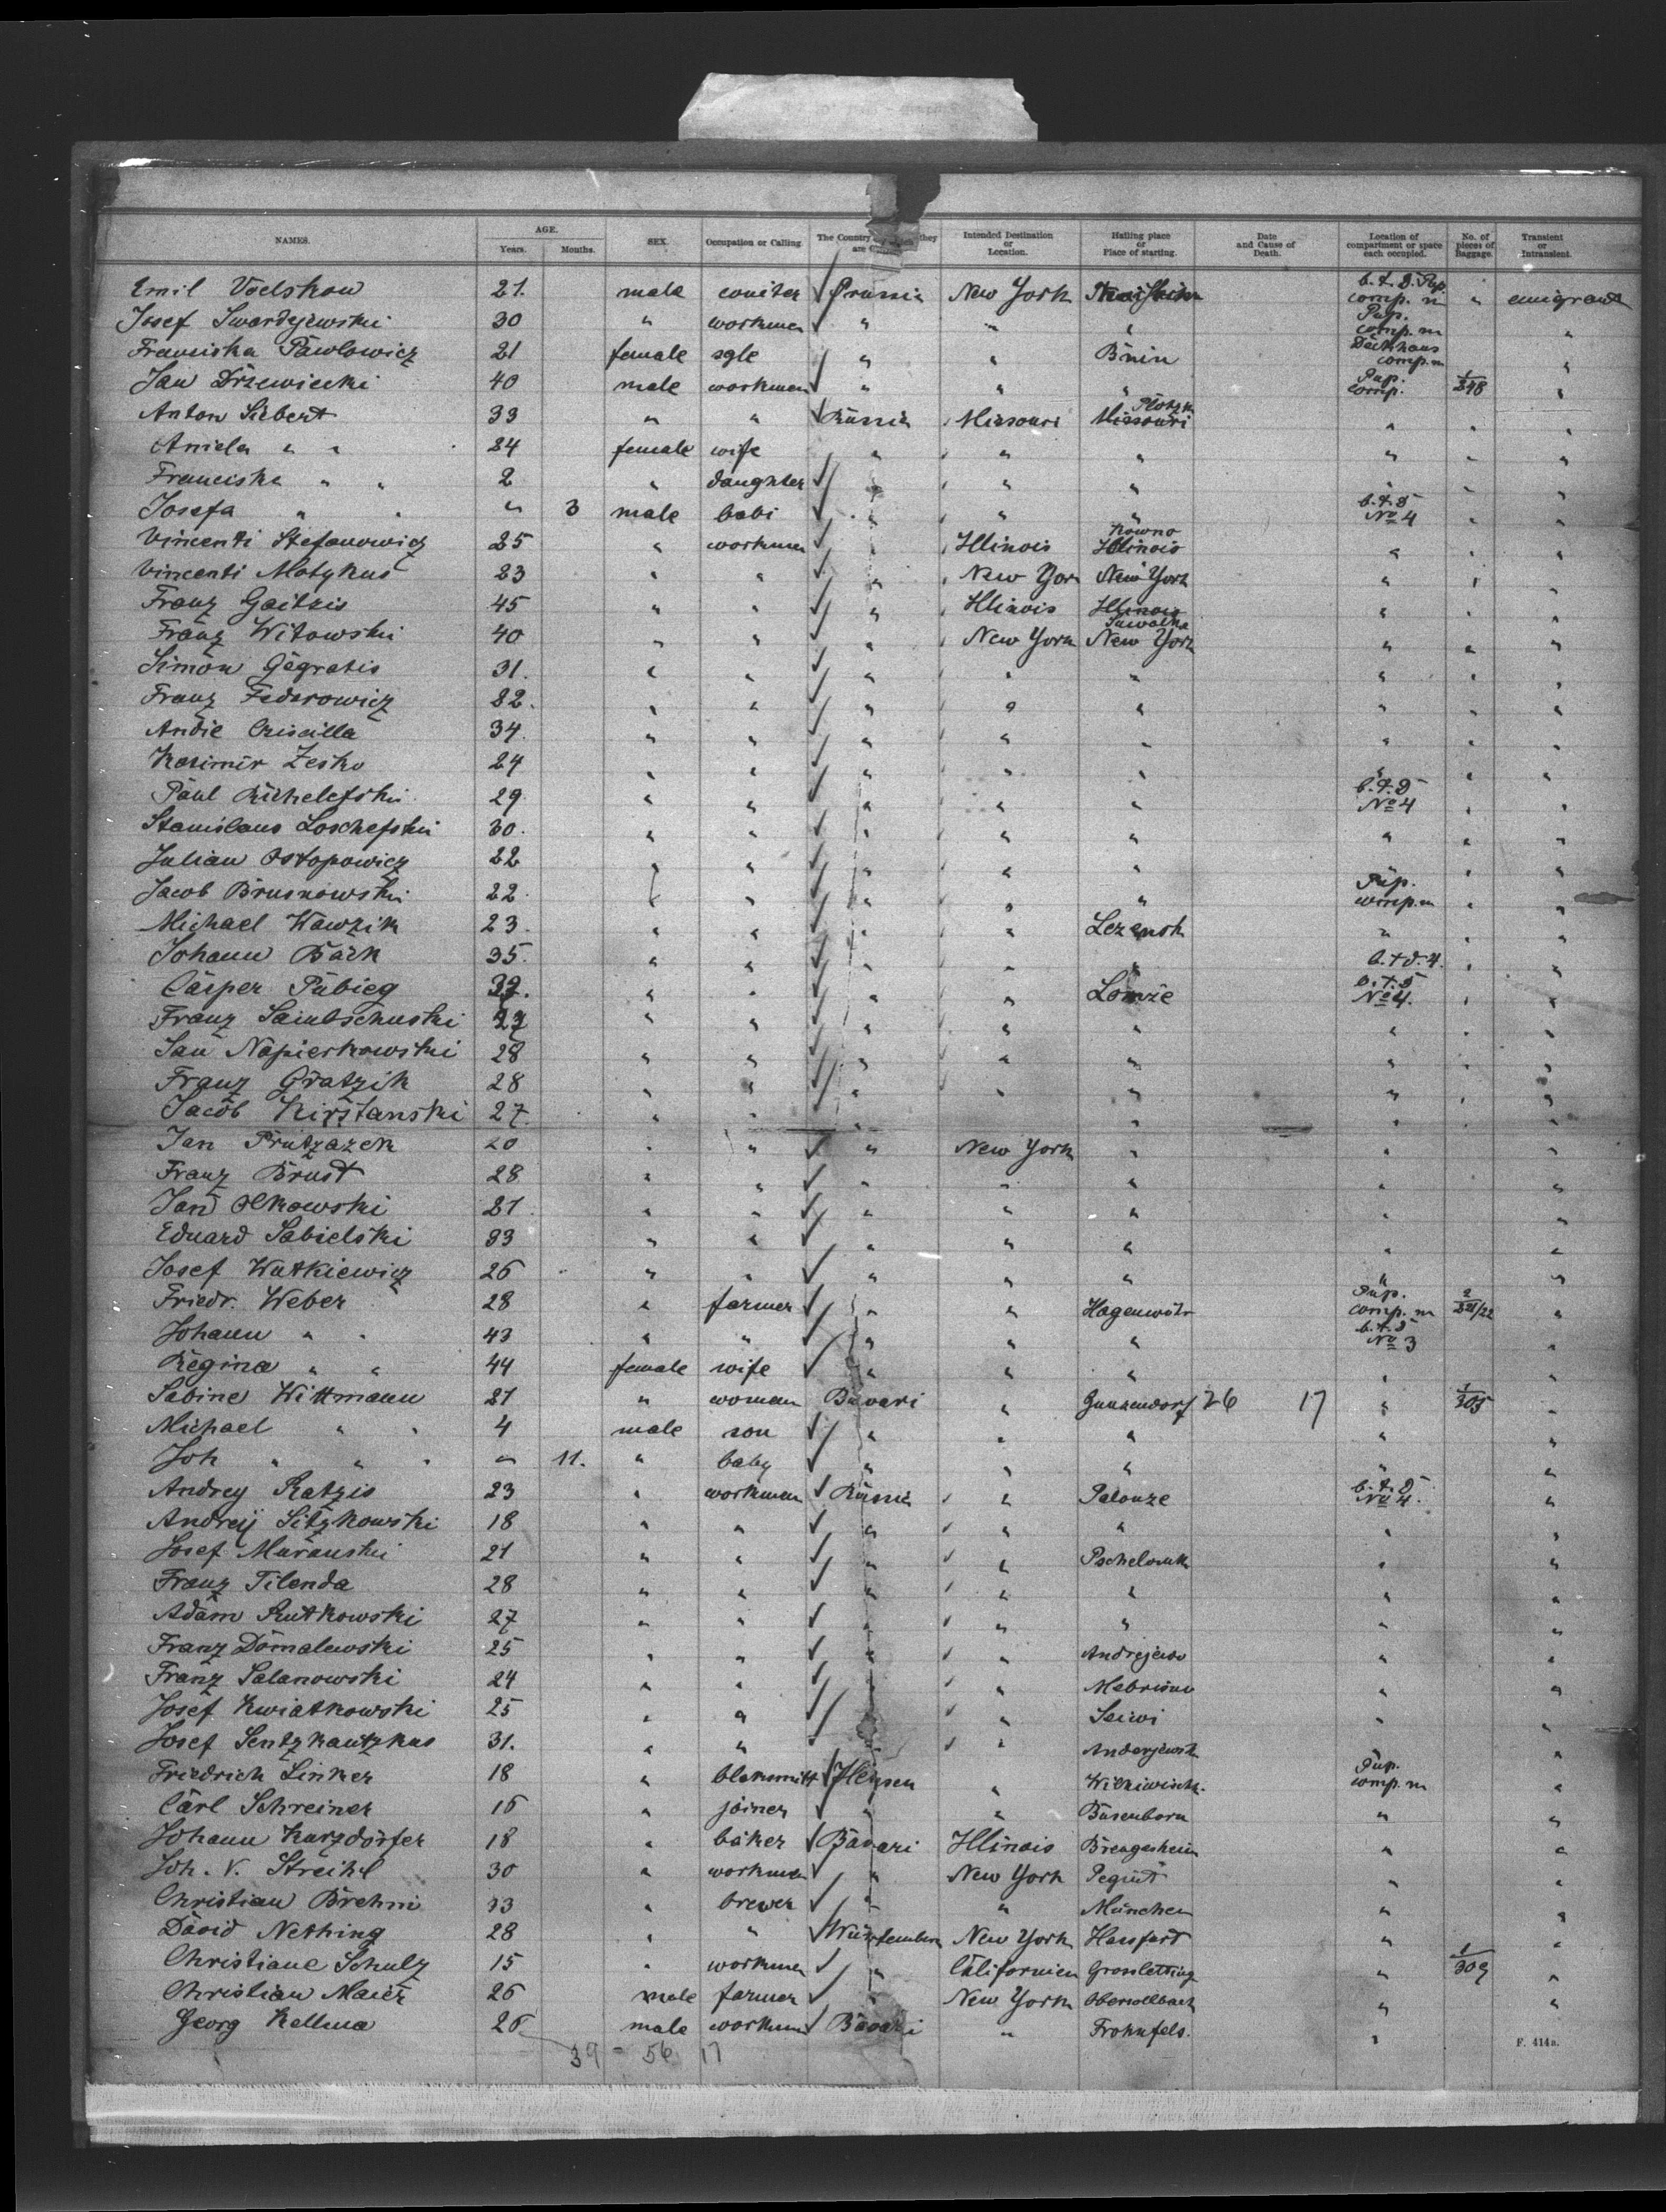 NAMES. AGE. Years. Months. SEX. Occupation or Calling. The Country they are Intended Destination or Location. Hailing place or Place of starting. Date and Cause of Death. Location of compartment or space each occupied. No. of pieces of Baggage. Transient or Intransient.
Emil Voelskow 21. male Prussia New York b.t.D. Püp. comp. m " emigrant
Josef Swardejewski 30 " workmen " " " Püp. comp. m "
Franciska Pawlowicz 21 female sgle " " Bnin Deckhaus comp. m "
Jan Drzewiecki 40 male workmen " " " Püp. comp. 1/248 "
Anton Siebert 33 " " Russia Missouri Plotzk Missouri " " "
Aniela " " 24 female wife " " " " " "
Franciska " " 2 " daughter " " " " " "
Josefa " " " 3 male babi " " " b.t.D No 4 " "
Vincenti Stefanowicz 25 " workmen " Illinois Kowno Illinois " " "
Vincenti Motykus 23 " " " New Yor New York " " "
Franz Gaitzis 45 " " " Illinois Illinois " " "
Franz Witowski 40 " " " New York Suwalka New York " " "
Simon Gegratis 31. " " " " " " "
Franz Federowicz 22. " " " " " " " "
Andie 34. " " " " " " " "
Kasimir Zesko 24 " " " " " " " "
Paul Richelefski 29 " " " " " b.t.D No 4 " "
Stanislaus Loschefski 30. " " " " " " " "
Julian Ostopowicz 22 " " " " " " "
Jacob Brusnowski 22. " " " " " Püp. comp. m " "
Michael Wawzik 23. " " " " " " "
Johann Bark 35. " " " " " b.t.d. 4. " "
Casper Pubieg 32. " " " " Lomze b.t.D No 4. " "
Franz 27 " " " " " " " "
Jan Napierkowski 28 " " " " " " " "
Franz Gratzik 28 " " " " " " " "
Jacob Kirstanski 27. " " " " " " "
Jan Prutzazek 20 " " " New York " " "
Franz Brust 28 " " " " " " "
Jan Olkowski 21. " " " " " " "
Eduard Sabielski 33 " " " " " " "
Josef Wutkiewicz 26 " " " " " " "
Friedr. Weber 28 " farmer " " Püp. comp. m "
Johann " " 43 " " " " " b.t.D No 3 "
Regina " " 44 female wife " " " " "
Sabine Wittmann 21 " woman Bavari " Gunzendorf 26 17 " 1/305 "
Michael " " 4 male son " " " " "
Joh " " " " 11. " baby " " " " "
Andrey Ratzis 23 " workmen Russia " Palonze b.t.D No 4. "
Andreij Sitzkowski 18 " " " " " " "
Josef Muranski 21 " " " " " "
Franz Tilenda 28 " " " " " " "
Adam Rutkowski 27 " " " " " " "
Franz Domalewski 25 " " " " Andrejewo " "
Franz Salanowski 24 " " " " " "
Josef Kwiatkowski 25 " " " Seiwi " "
Josef Sentzkautzkus 31. " " " " "
Friedrich Linker 18 " blaksmitt Hessen " Püp. comp. m "
Carl Schreiner 16 " joiner " " Busenborn " "
Johann Kurzdörfer 18 " baker Bavari Illinois " "
Joh. V. Streihl 30 " workmen " New York " "
Christian Brehm 33 " brewer " " München " "
David Nething 28 " " Würtemberg New York Hassfurt " "
Christiane Schulz 15 " workmen " Californien " 1/309 "
Christian Maier 26 male farmer " New York " "
Georg Kellma 26 male workmen Bavari " Frohnfels. "
39 - 56 17
F. 414a.